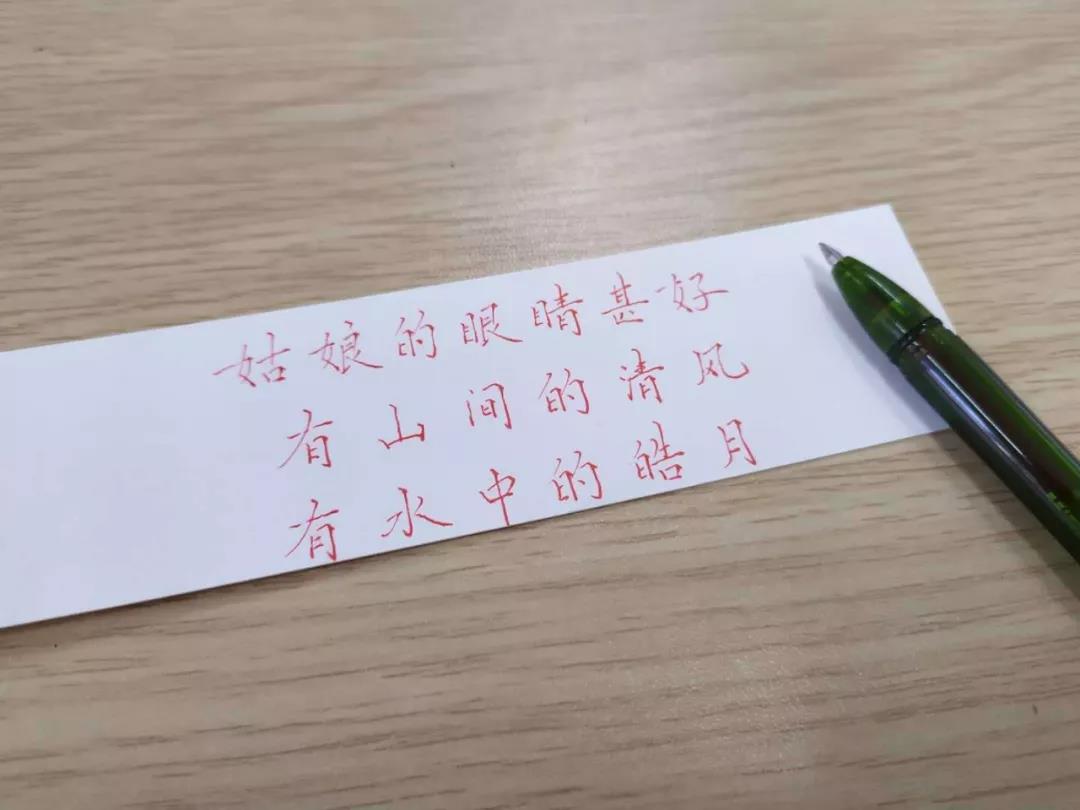 姑娘的眼睛甚好
有山间的清风
有水中的皓月